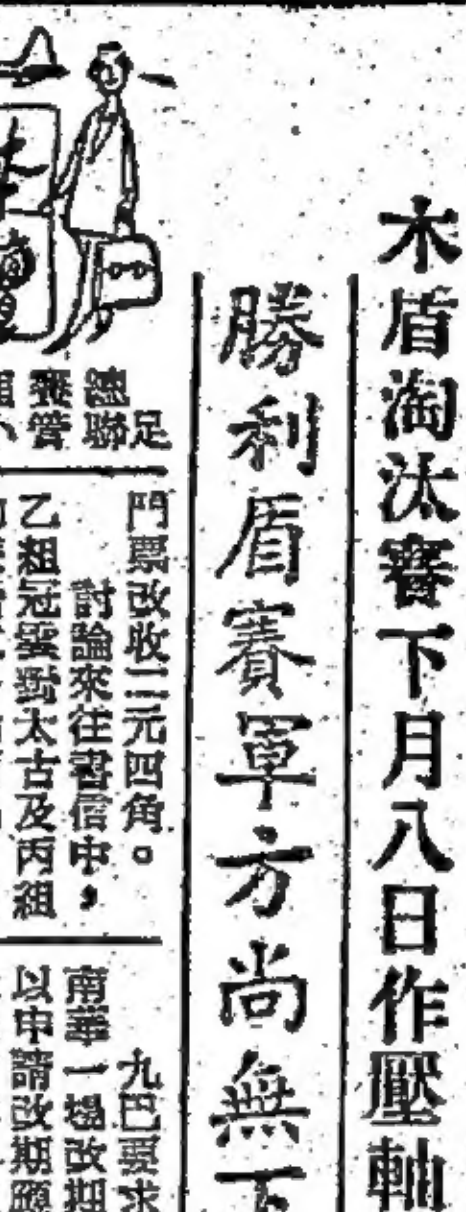 木盾淘汰賽下月八日作壓軸
勝利盾賽軍方尚無下
足
總聯
賽管
門票改收二元四角。
討論來往書信中，
乙組冠軍對太古及丙組
九巴要求
南華一場改期
以申請改期願